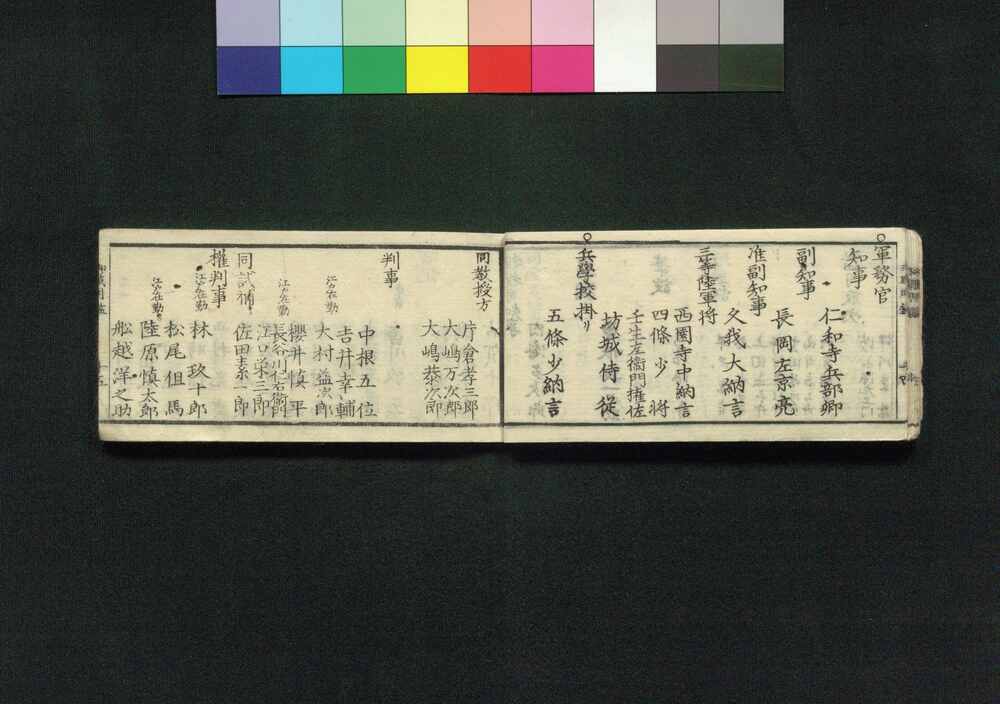 ○軍務官
知事
仁和寺兵部卿
副知事
長岡左京亮
准副知事
久我大納言
三等陸軍将
西園寺中納言
四條少将
壬生左衛門権佐
坊城侍従
○兵學校掛リ
五條少納言
同教授方
片倉孝三郎
大嶋万次郎
大嶋恭次郎
判事
中根五位
吉井幸輔
江戸在勤
大村益次郎
櫻井慎平
江戸在勤
長谷川仁右衛門
江口栄三郎
同試補
佐田素一郎
権判事
江戸在勤
林玖十郎
松尾但馬
江戸在勤
陸原慎太郎
舩越洋之助